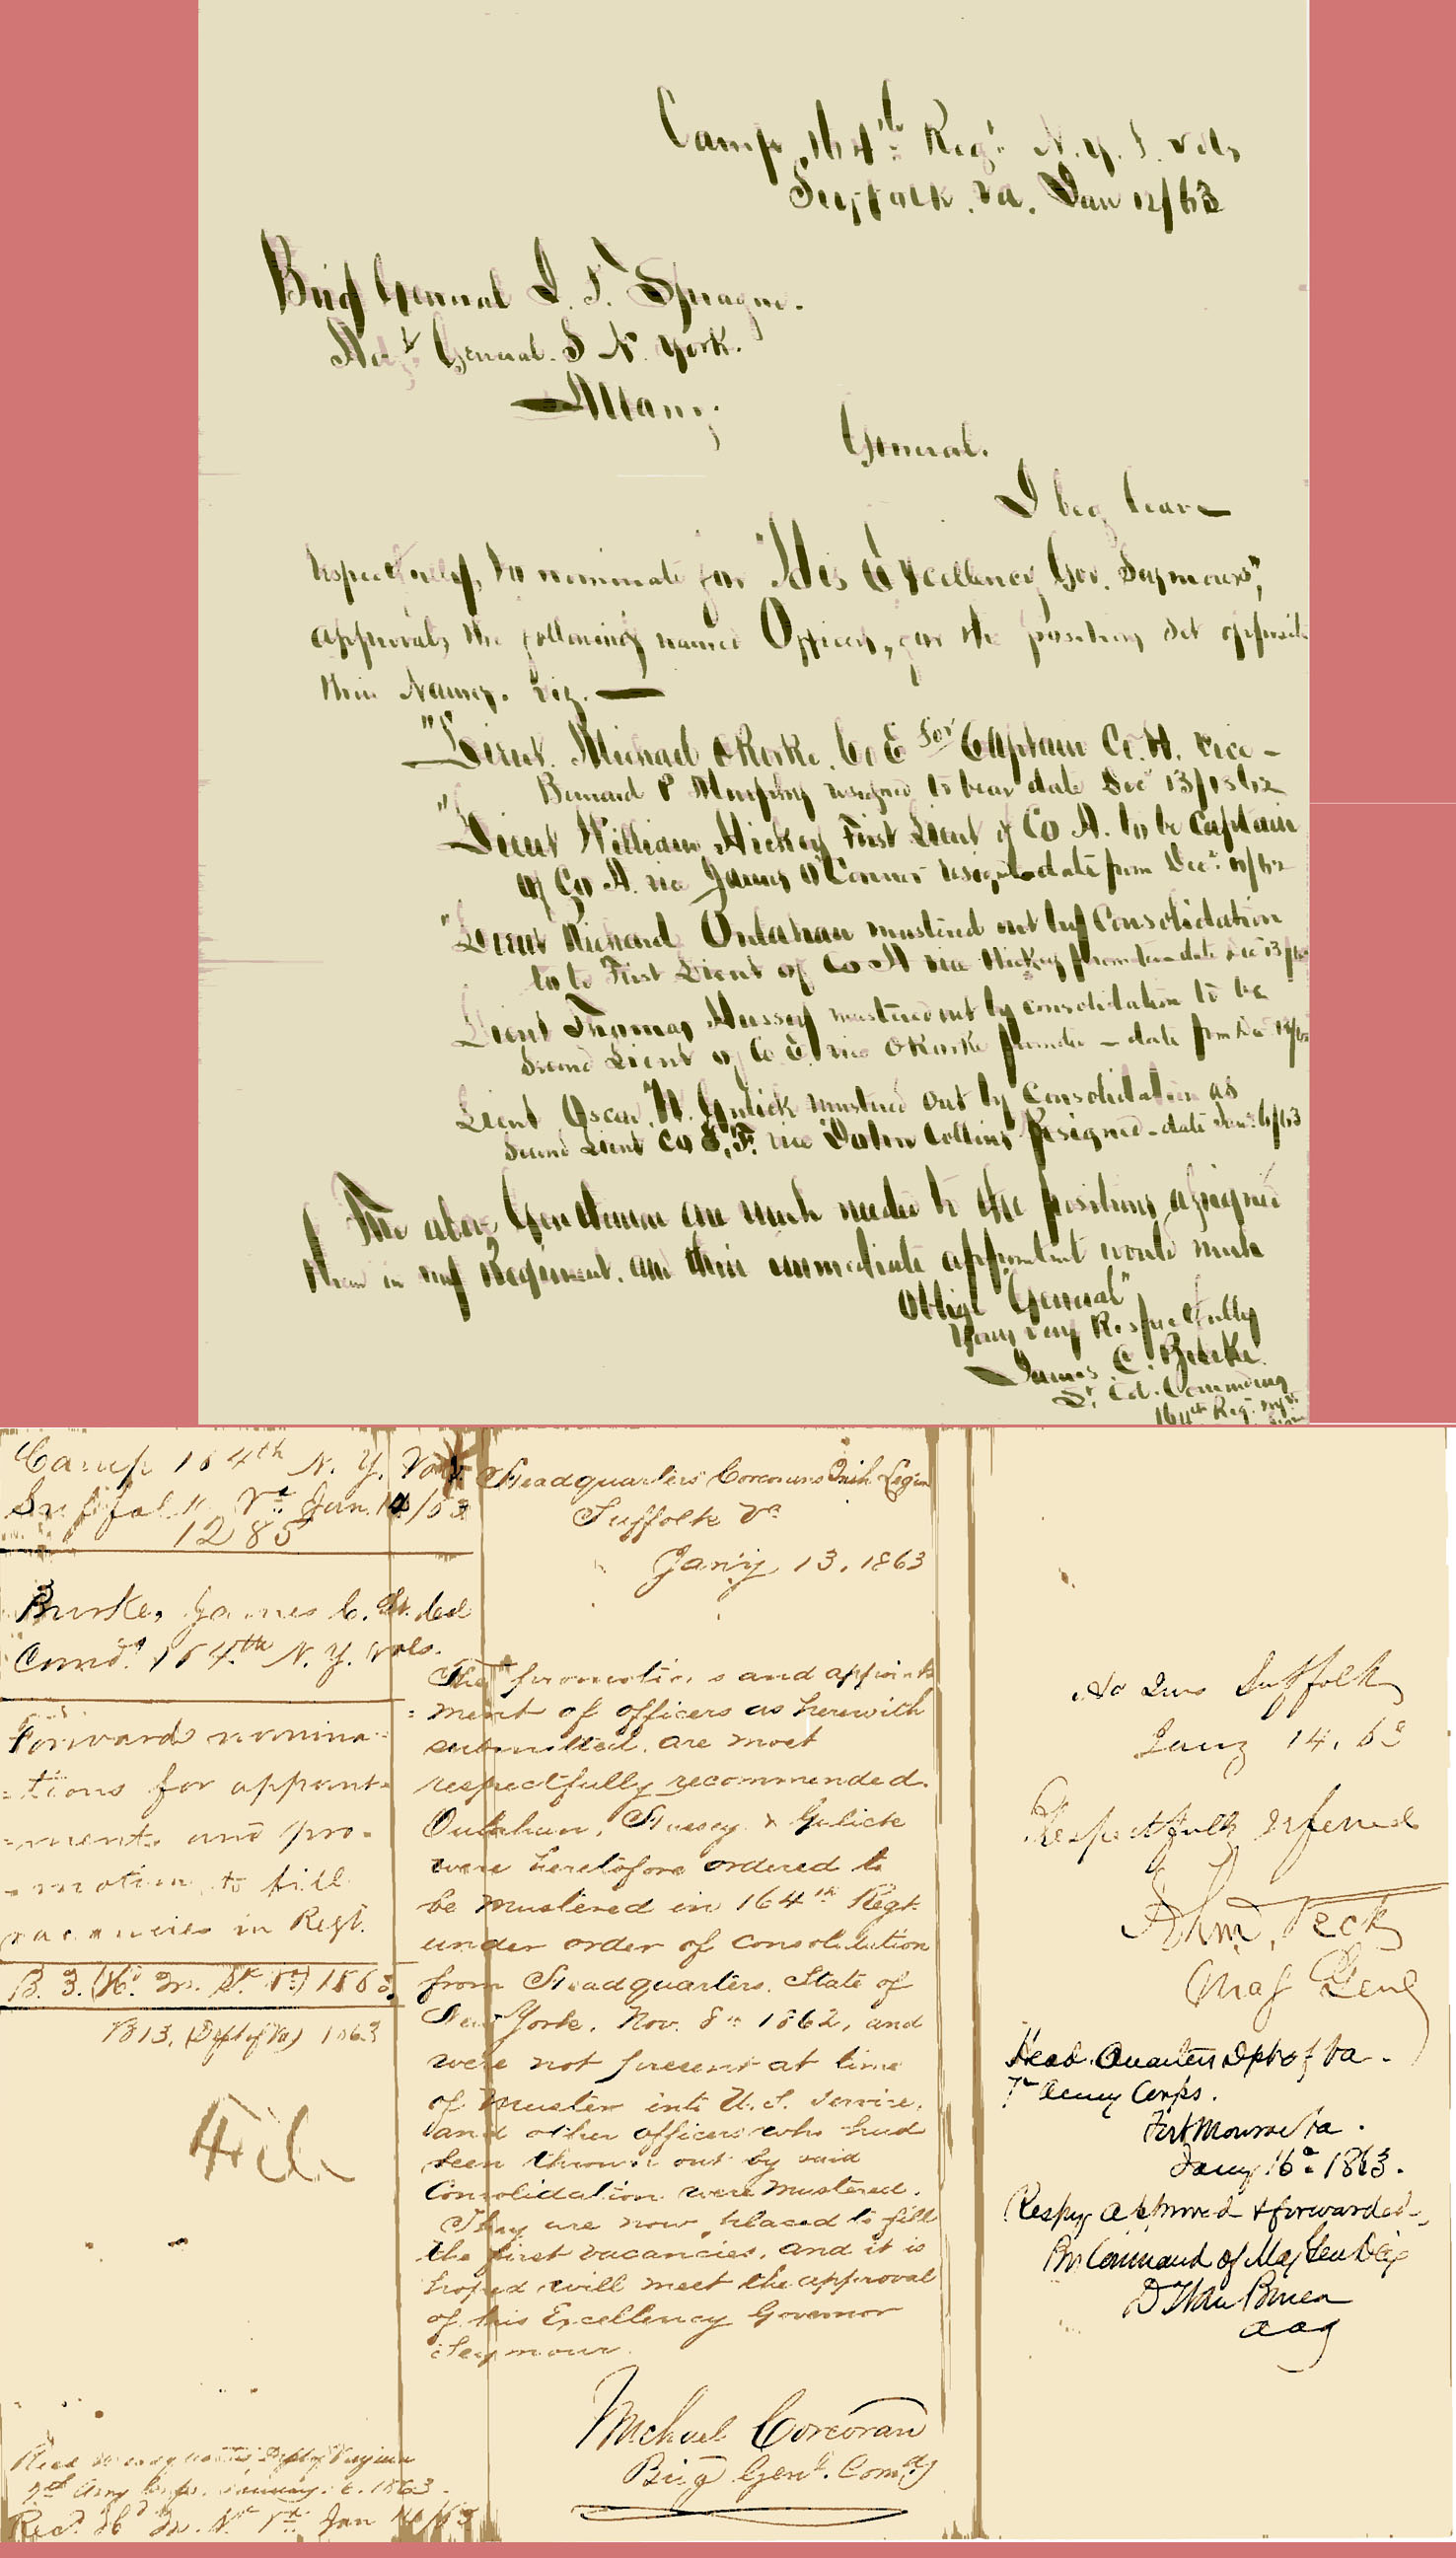 Camp 164th Regt N. Y. S. Vols
Suffolk. Va. Jan 12/63
Brig General J. T. Sprague.
Adjt General. S N. York.
Albany
General.
I beg leave
respectfully, to nominate for "His Excellency Gov. Seymours",
approval, the following named Officers, for the positions set opposite
their Names. viz.—
"Lieut. Michael O'Rorke. Co E for Captain Co. H. vice -
Bernard P Murphy resigned to bear date Dec 13/1862
"Lieut William Hickey First Lieut of Co A. to be Captain
of Co A. vice James O'Connor resigned date from Dec.
"Lieut Richard Oulahan mustered out by Consolidation
to be First Lieut of Co A vice Hickey promoted date Dec 13/62
Lieut Thomas Hussey mustered out by consolidation to be
Second Lieut of Co E, vice O'Rorke promoted - date from Dec 13/62
Lieut Oscar. W. Gulick mustered out by Consolidation as
Second Lieut Co F. vice John Collins Resigned - date Jan. 6/63
The above Gentlemen are much needed to the positions assigned
them in my Regiment. and their immediate appointment would much
Oblige "General"
Your very Respectfully
James. C. Burke.
Lt. Col. Commding
164th Reg. NYS
Camp 164th N. Y. Vols
Suffolk Va. Jan. 12/63
1285
Burke, James C. Lt. Col
Comd. 164th N. Y. Vols.
Forwards nomina-
-tions for appoint-
-ments and pro-
-motion, to fill
vacancies in Regt.
B. 3. (Hd. Qr. Sk. Va) 1863.
B13. (Dept of Va) 1863
File
Recd Headquarters Dept of Virginia
7th Army Corps. January. 1863.
Recd. Hd Qr. Sk Va. Jan 14/63
Headquarters Corcorans Irish Legion
Suffolk Va
Jan'y 13, 1863
The promotions and appoint
-ment of officers as herewith
submitted. are most
respectfully recommended.
Oulahan, Hussey & Gulick
were heretofore ordered to
be mustered in 164th Regt.
under order of consolidation
from Headquarters. State of
New York. Nov. 8th 1862, and
were not present at time
of Muster into U. S. Service,
and other officers who had
been thrown out by said
Consolidation were mustered.
They are now placed to fill
the first vacancies, and it is
hoped will meet the approval
of his Excellency Governor
Seymour.
Michael Corcoran
Brig Genl. Comdg
Hd Qrs Suffolk
Jany 14. 63
Respectfully referred
Jno. J. Peck
Maj Genl
Head. Quarters Dpt of Va.
7th Army Corps.
Fort Monroe Va.
Jany 16th 1863.
Respy approved & forwarded.
By Command of Maj Gen Dix
D T Van Buren
aag